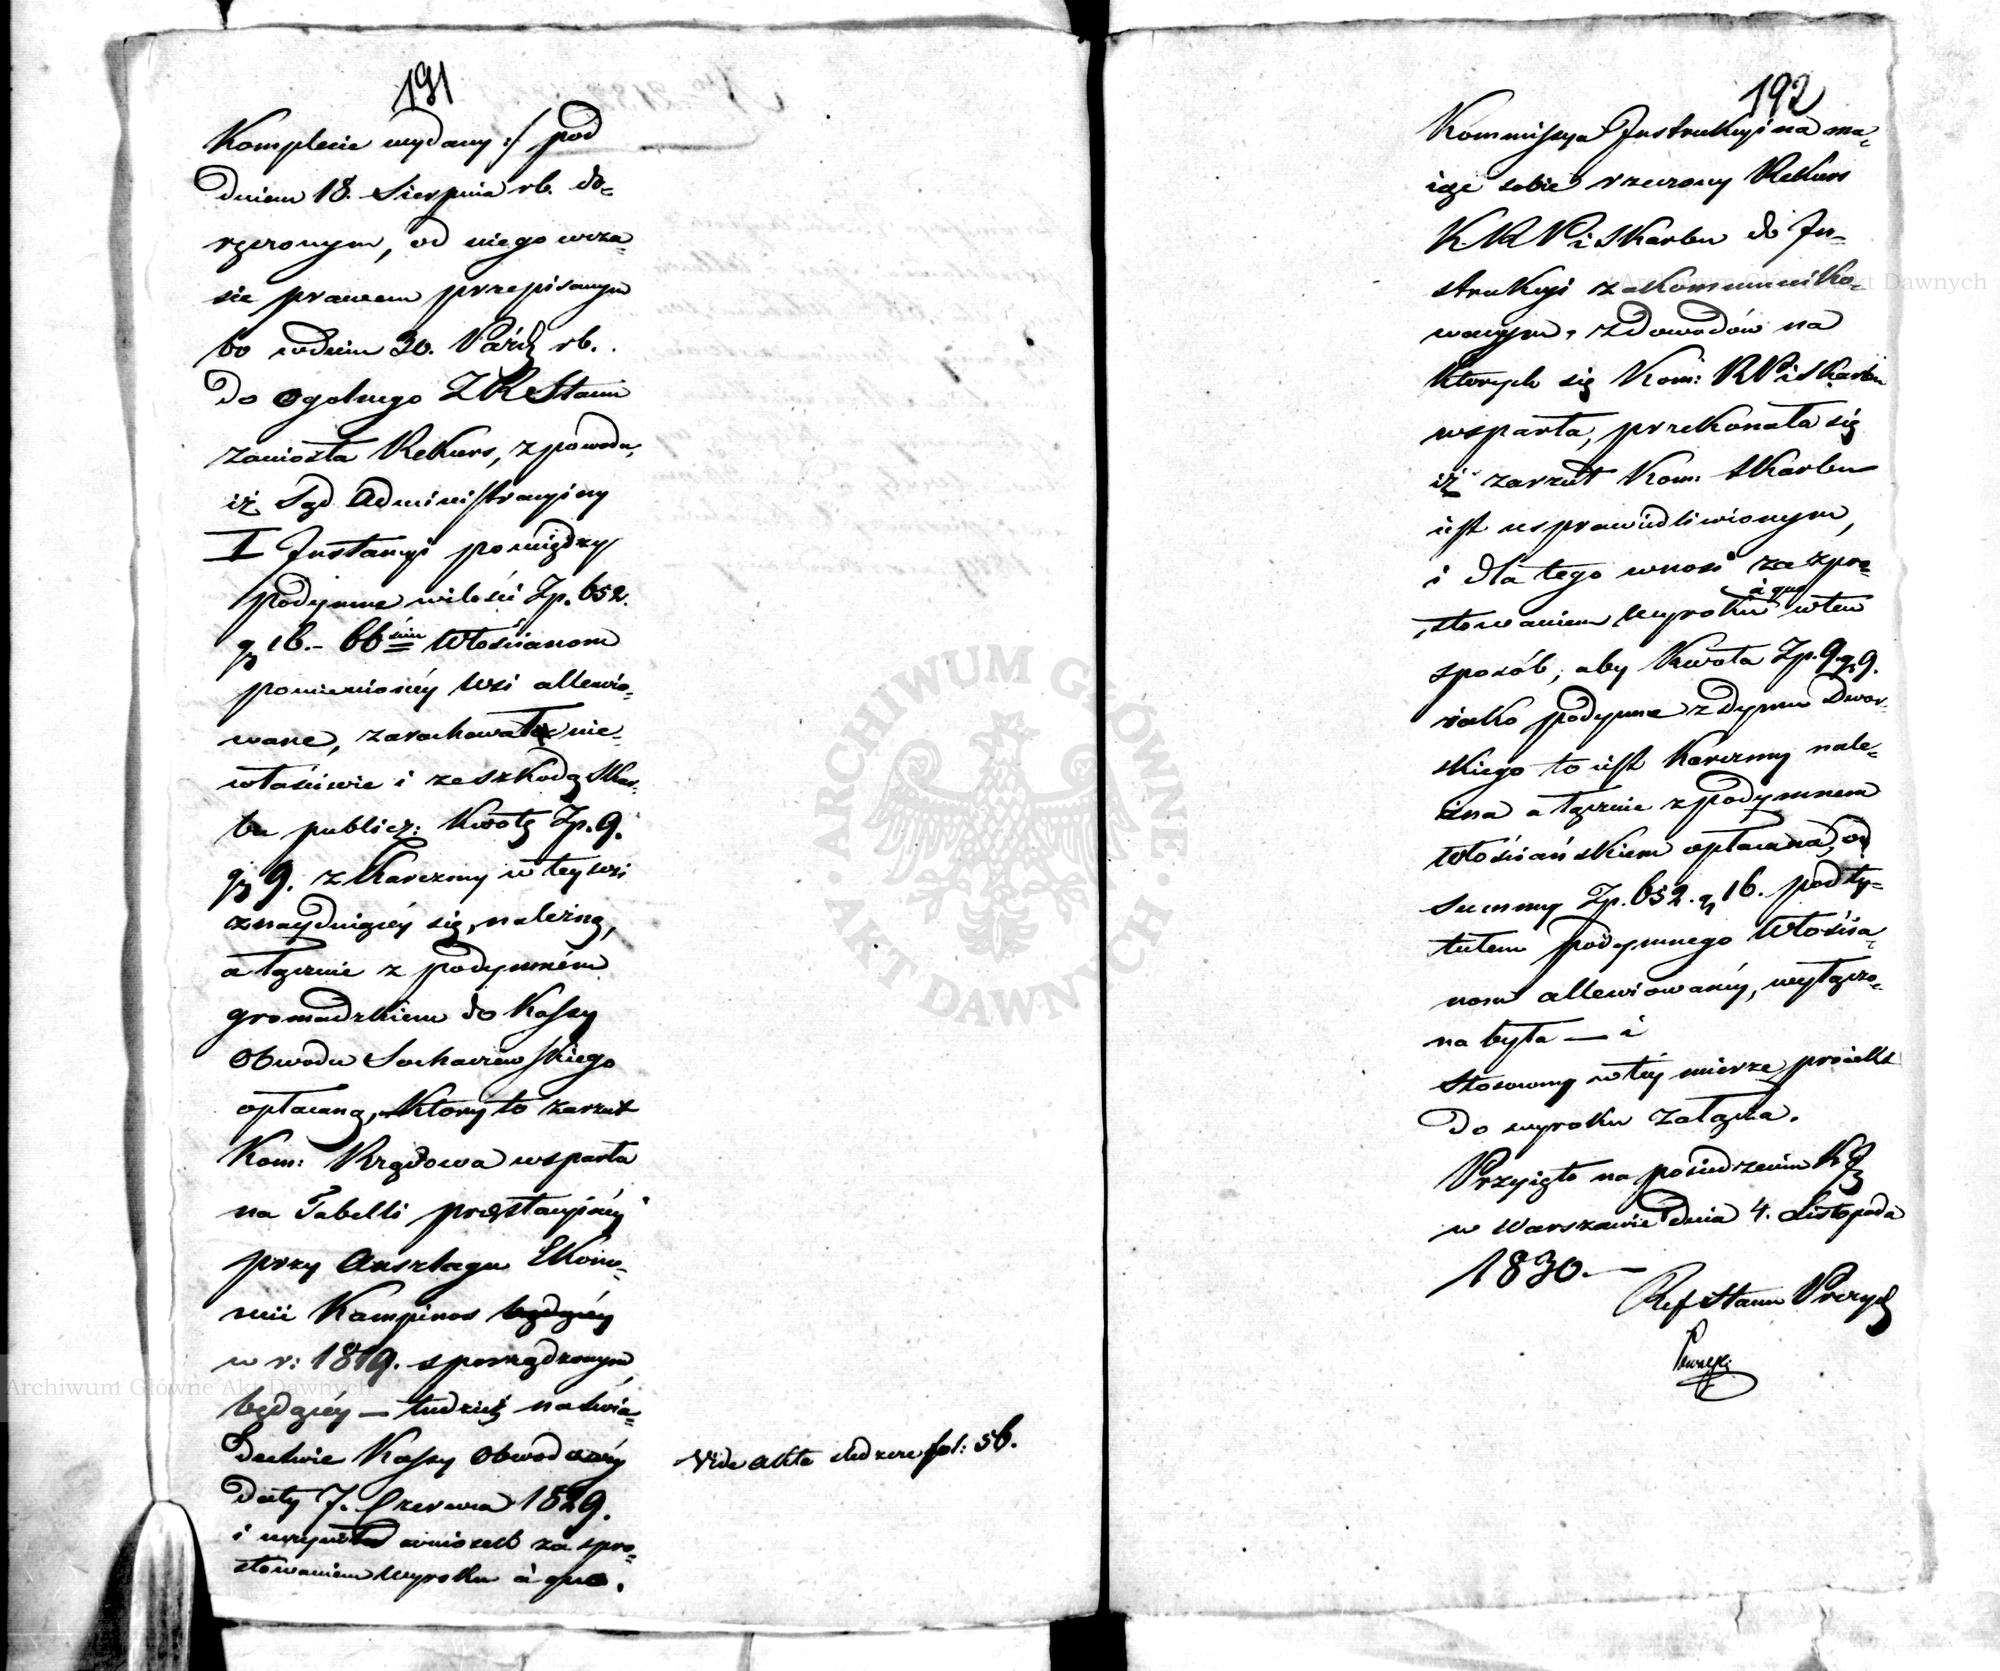 191
Komplecie wydany :/ pod
dniem 18. Sierpnia rb. do-
ręczonym, od niego w cza-
sie prawem przepisanym
bo w dniu 30. Paźdz rb.
do Ogolnego ZRStanu
zaniosła Rekurs, z powodu,
iż Sąd Administracyiny
I Instancyi pomiędzy
podymne w ilości Zp. 652.
gr 16. – 66 Włościanom
pomienioney wsi allewio-
wane, zarachował nie-
właściwie i ze szkodą Skar-
bu publicz: kwotę Zp. 9.
gr 9. z Karczmy w tey wsi
znayduiącey się, należną,
a łącznie z podymném
gromadzkiem do Kassy
Obwodu Sochaczewskiego
opłacaną, który to zarzut
Kom: Rządowa wsparła
na Tabelli prestacyiney
przy Anszlagu Ekono-
mii Kampinos będącey
w r: 1819. sporządzonym
będącey — tudzież na świa-
dectwie Kassy Obwodowéy
daty 7. Czerwca 1829.
i wniosek za spro-
stowaniem Wyroku à quo.
Vide akta fol: 56.
192
Kommissya Instrukcyina ma-
iąc sobie rzeczony Rekurs
K. R P i Skarbu do In-
strukcyi zakommuniko-
wanym, z dowodów na
których się Kom: RPiSkarbu
wsparła, przekonała się
iż zarzut Kom: Skarbu
iest usprawiedliwionym,
i dla tego wnosi za spro-
stowaniem wyroku à quo w ten
sposób, aby kwota Zp. 9. gr 9.
iako podymne z dymu Dwor-
skiego to iest Karczmy nale-
żna a łącznie z podymnem
Włościańskiem opłacana, od
summy Zp. 652. gr 16. pod ty-
tułem podymnego Włościa-
nom allewiowaney, wyłączo-
na była — i
stosowny w téy mierze proiekt
do wyroku załącza.
Przyięto na posiedzeniu KJ
w Warszawie dnia 4. Listopada
1830. —
Ref Stanu Prezyd